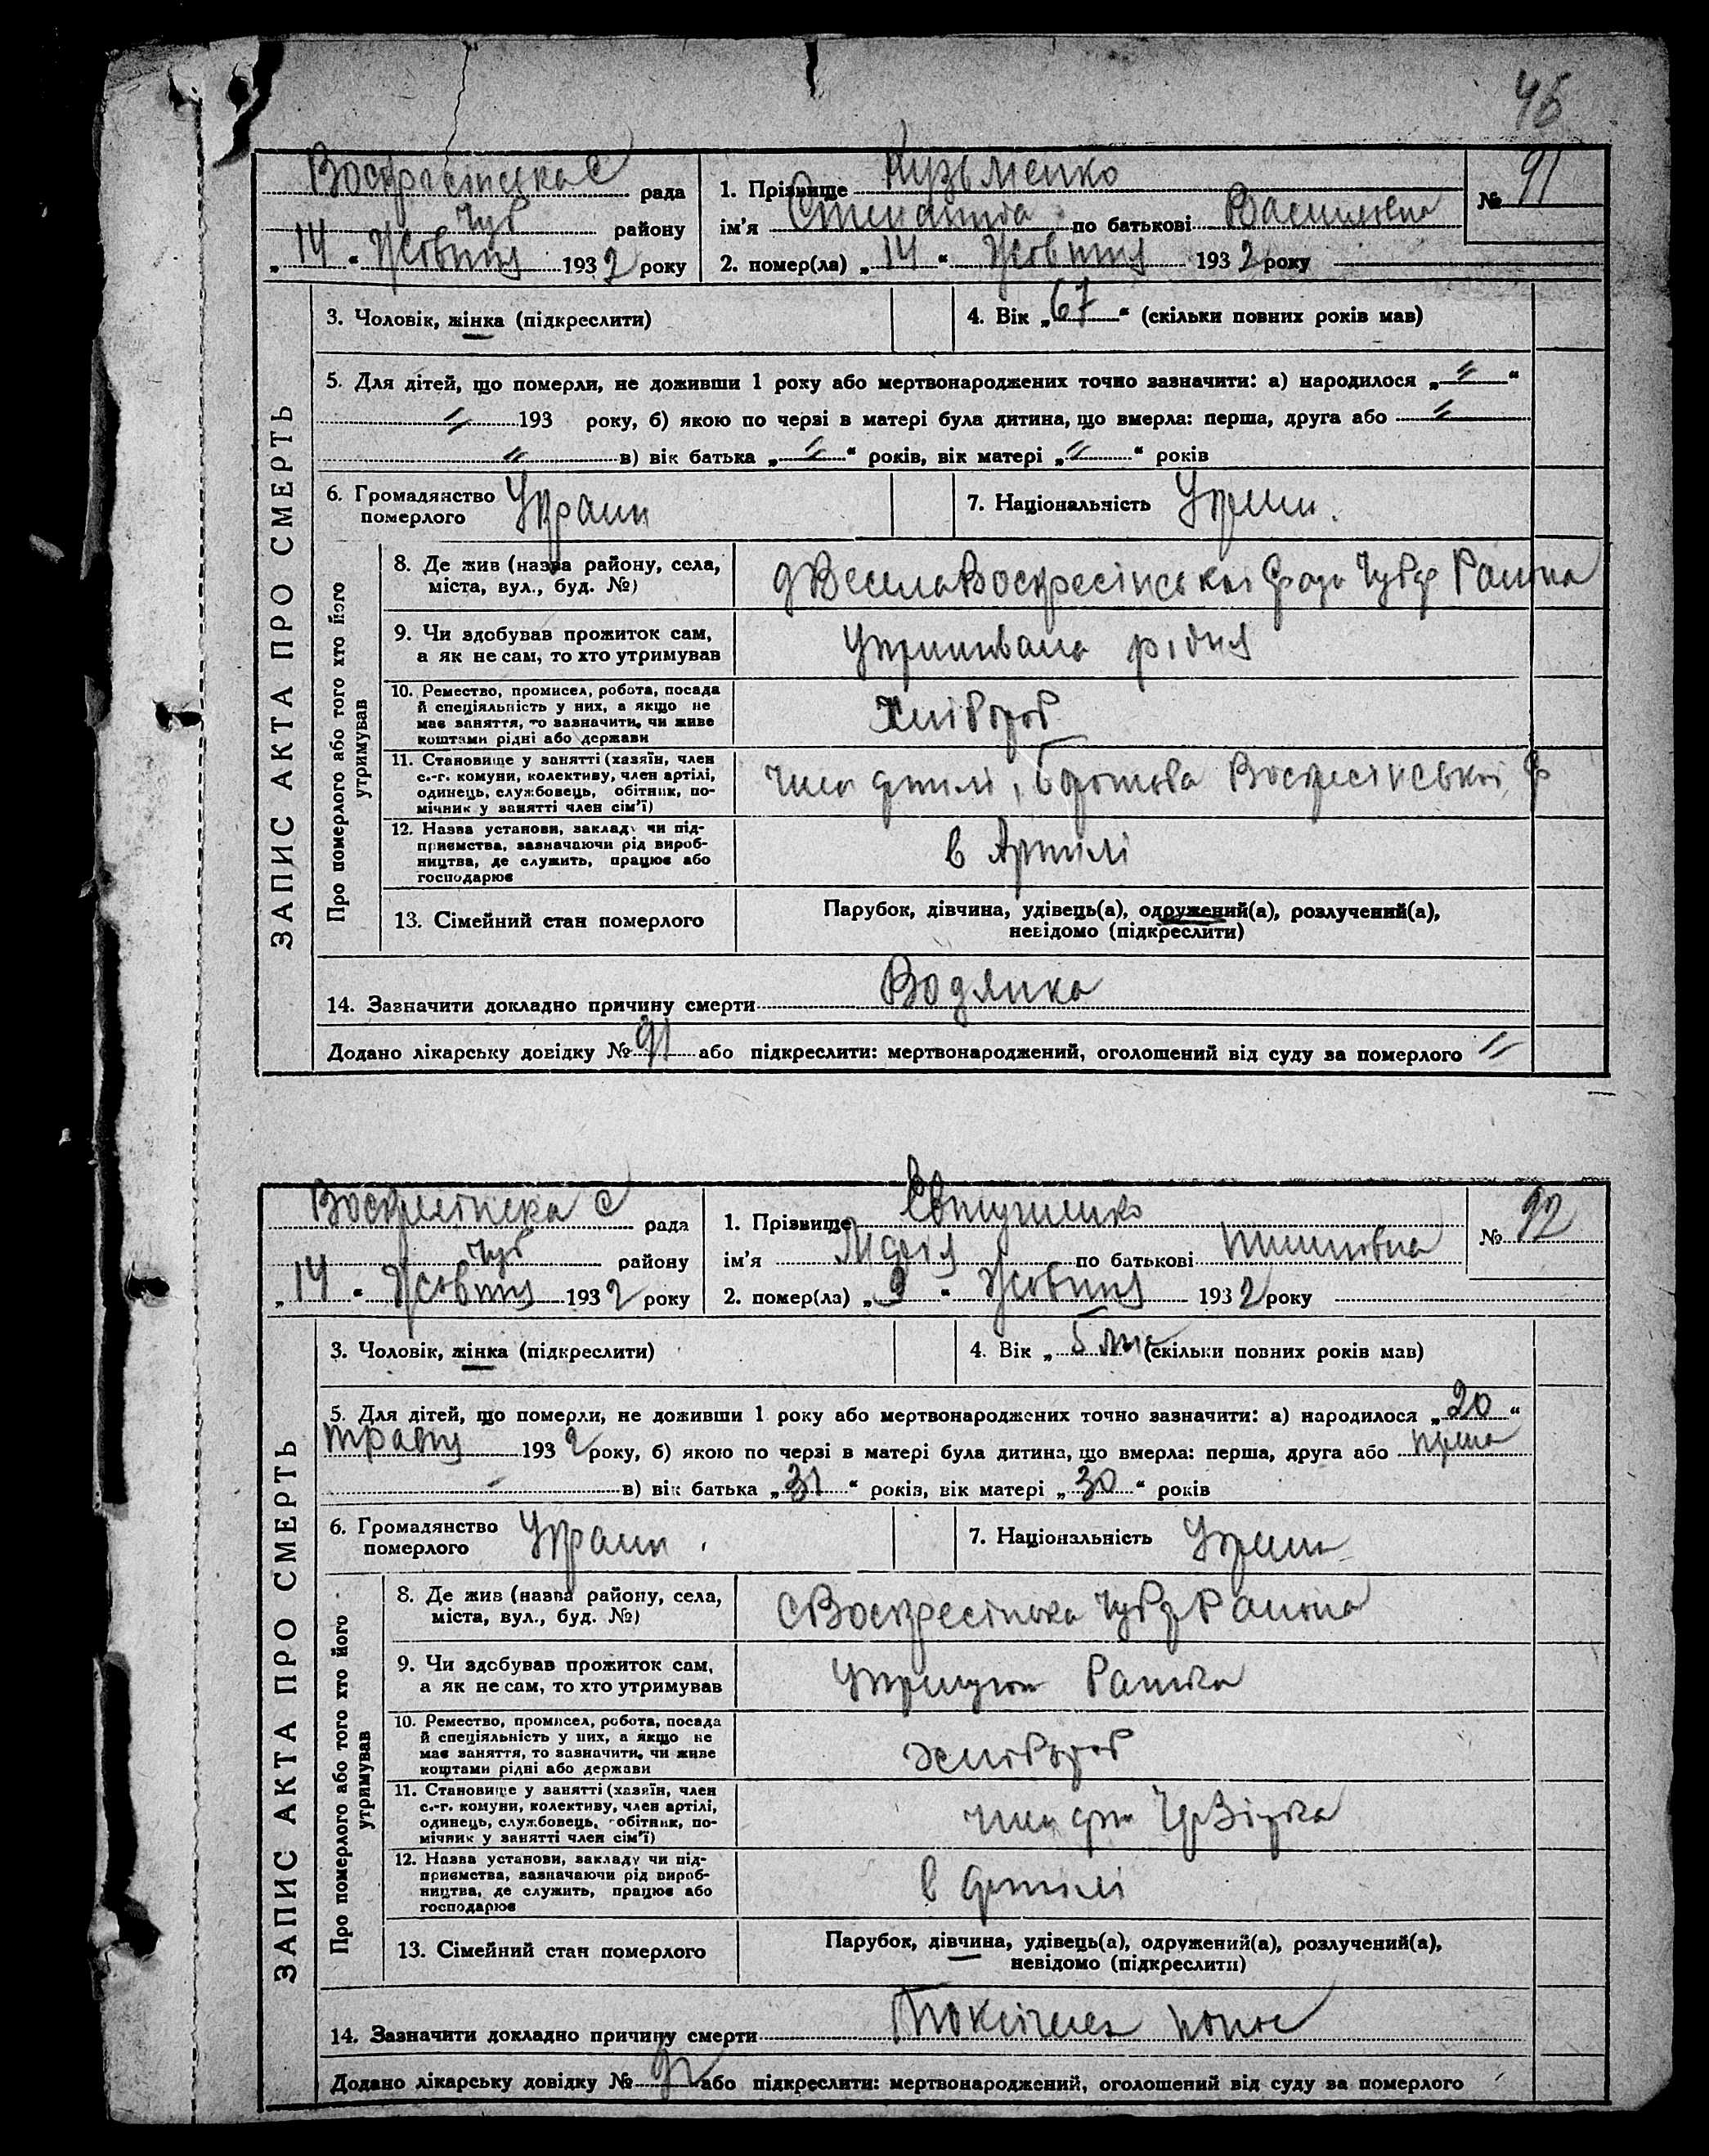 45
Воскресінська С рада
Чуб району
„14“ Жовтня 1932 року
1. Прізвище Кузьменко
ім'я Степанида по батькові Василовна
2. помер(ла) „14“ Жовтня 1932 року
№ 91
ЗАПИС АКТА ПРО СМЕРТЬ
3. Чоловік, жінка (підкреслити)
4. Вік „67“ (скільки повних років мав)
5. Для дітей, що померли, не доживши 1 року або мертвонароджених точно зазначити: а) народилося „ “
193 року, б) якою по черзі в матері була дитина, що вмерла: перша, друга або
в) вік батька „ “ років, вік матері „ “ років
6. Громадянство померлого Украин
7. Національність Украин.
Про померлого або того хто його утримував
8. Де жив (назва району, села,
міста, вул., буд. №)
Весела Воскресінської Района
9. Чи здобував прожиток сам,
а як не сам, то хто утримував
Утримивала рідня
10. Ремество, промисел, робота, посада
й спеціяльність у них, а якщо не
має заняття, то зазначити, чи живе
коштами рідні або держави
Хлібороб
11. Становище у занятті (хазяїн, член
с.-г. комуни, колективу, член артілі,
одинець, службовець, обітник, по-
мічник у занятті член сім'ї)
член артилі, Воскресінської
12. Назва установи, закладу чи під-
приємства, зазначаючи рід вироб-
ництва, де служить, працює або
господарює
в Артилі
13. Сімейний стан померлого
Парубок, дівчина, удівець(а), одружений(а), розлучений(а),
невідомо (підкреслити)
14. Зазначити докладно причину смерти Водянка
Додано лікарську довідку № 91 або підкреслити: мертвонароджений, оголошений від суду за померлого
Воскресінска С рада
Чуб району
„14“ Жовтня 1932 року
1. Прізвище Євтушенко
ім'я Марія по батькові
2. помер(ла) „9“ Жовтня 1932 року
№ 92
ЗАПИС АКТА ПРО СМЕРТЬ
3. Чоловік, жінка (підкреслити)
4. Вік „5 (скільки повних років мав)
5. Для дітей, що померли, не доживши 1 року або мертвонароджених точно зазначити: а) народилося „20“
травня 1932 року, б) якою по черзі в матері була дитина, що вмерла: перша, друга або
в) вік батька „31“ років, вік матері „30“ років
6. Громадянство померлого Украин
7. Національність Украин
Про померлого або того хто його утримував
8. Де жив (назва району, села,
міста, вул., буд. №)
С Воскресінська Района
9. Чи здобував прожиток сам,
а як не сам, то хто утримував
10. Ремество, промисел, робота, посада
й спеціяльність у них, а якщо не
має заняття, то зазначити, чи живе
коштами рідні або держави
хлібороб
11. Становище у занятті (хазяїн, член
с.-г. комуни, колективу, член артілі,
одинець, службовець, обітник, по-
мічник у занятті член сім'ї)
член арт
12. Назва установи, закладу чи під-
приємства, зазначаючи рід вироб-
ництва, де служить, працює або
господарює
в артилі
13. Сімейний стан померлого
Парубок, дівчина, удівець(а), одружений(а), розлучений(а),
невідомо (підкреслити)
14. Зазначити докладно причину смерти Токсічна понос
Додано лікарську довідку № 92 або підкреслити: мертвонароджений, оголошений від суду за померлого